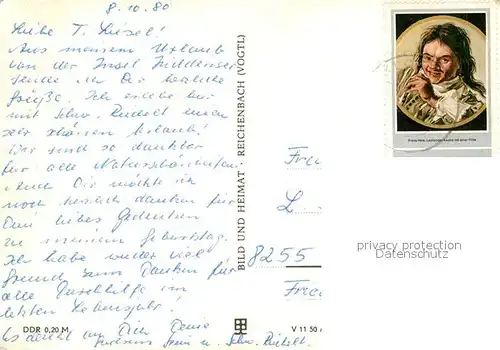 8.10.80
Liebe T. Liesel!
Aus meinem Urlaub
von der Insel Hiddensee
sende ich Dir herzliche
Grüße. Ich erlebe hier
mit Schw. einen
sehr schönen Urlaub!
Wir sind so dankbar
für alle Naturschönheiten.
Auch Dir möchte ich
noch herzlich danken für
Dein liebes Gedenken
zu meinem Geburtstag.
Ich habe wieder viel
Grund zum Danken für
alle Durchhilfe im
letzten Lebensjahr.
Es denkt an Dich Deine
u. Schw.
DDR 0,20 M
BILD UND HEIMAT REICHENBACH (VOGTL)
V 11 50
Frau
L
8255
Frau
Frans Hals, Lachender Knabe mit einer Flöte
privacy protection
Datenschutz